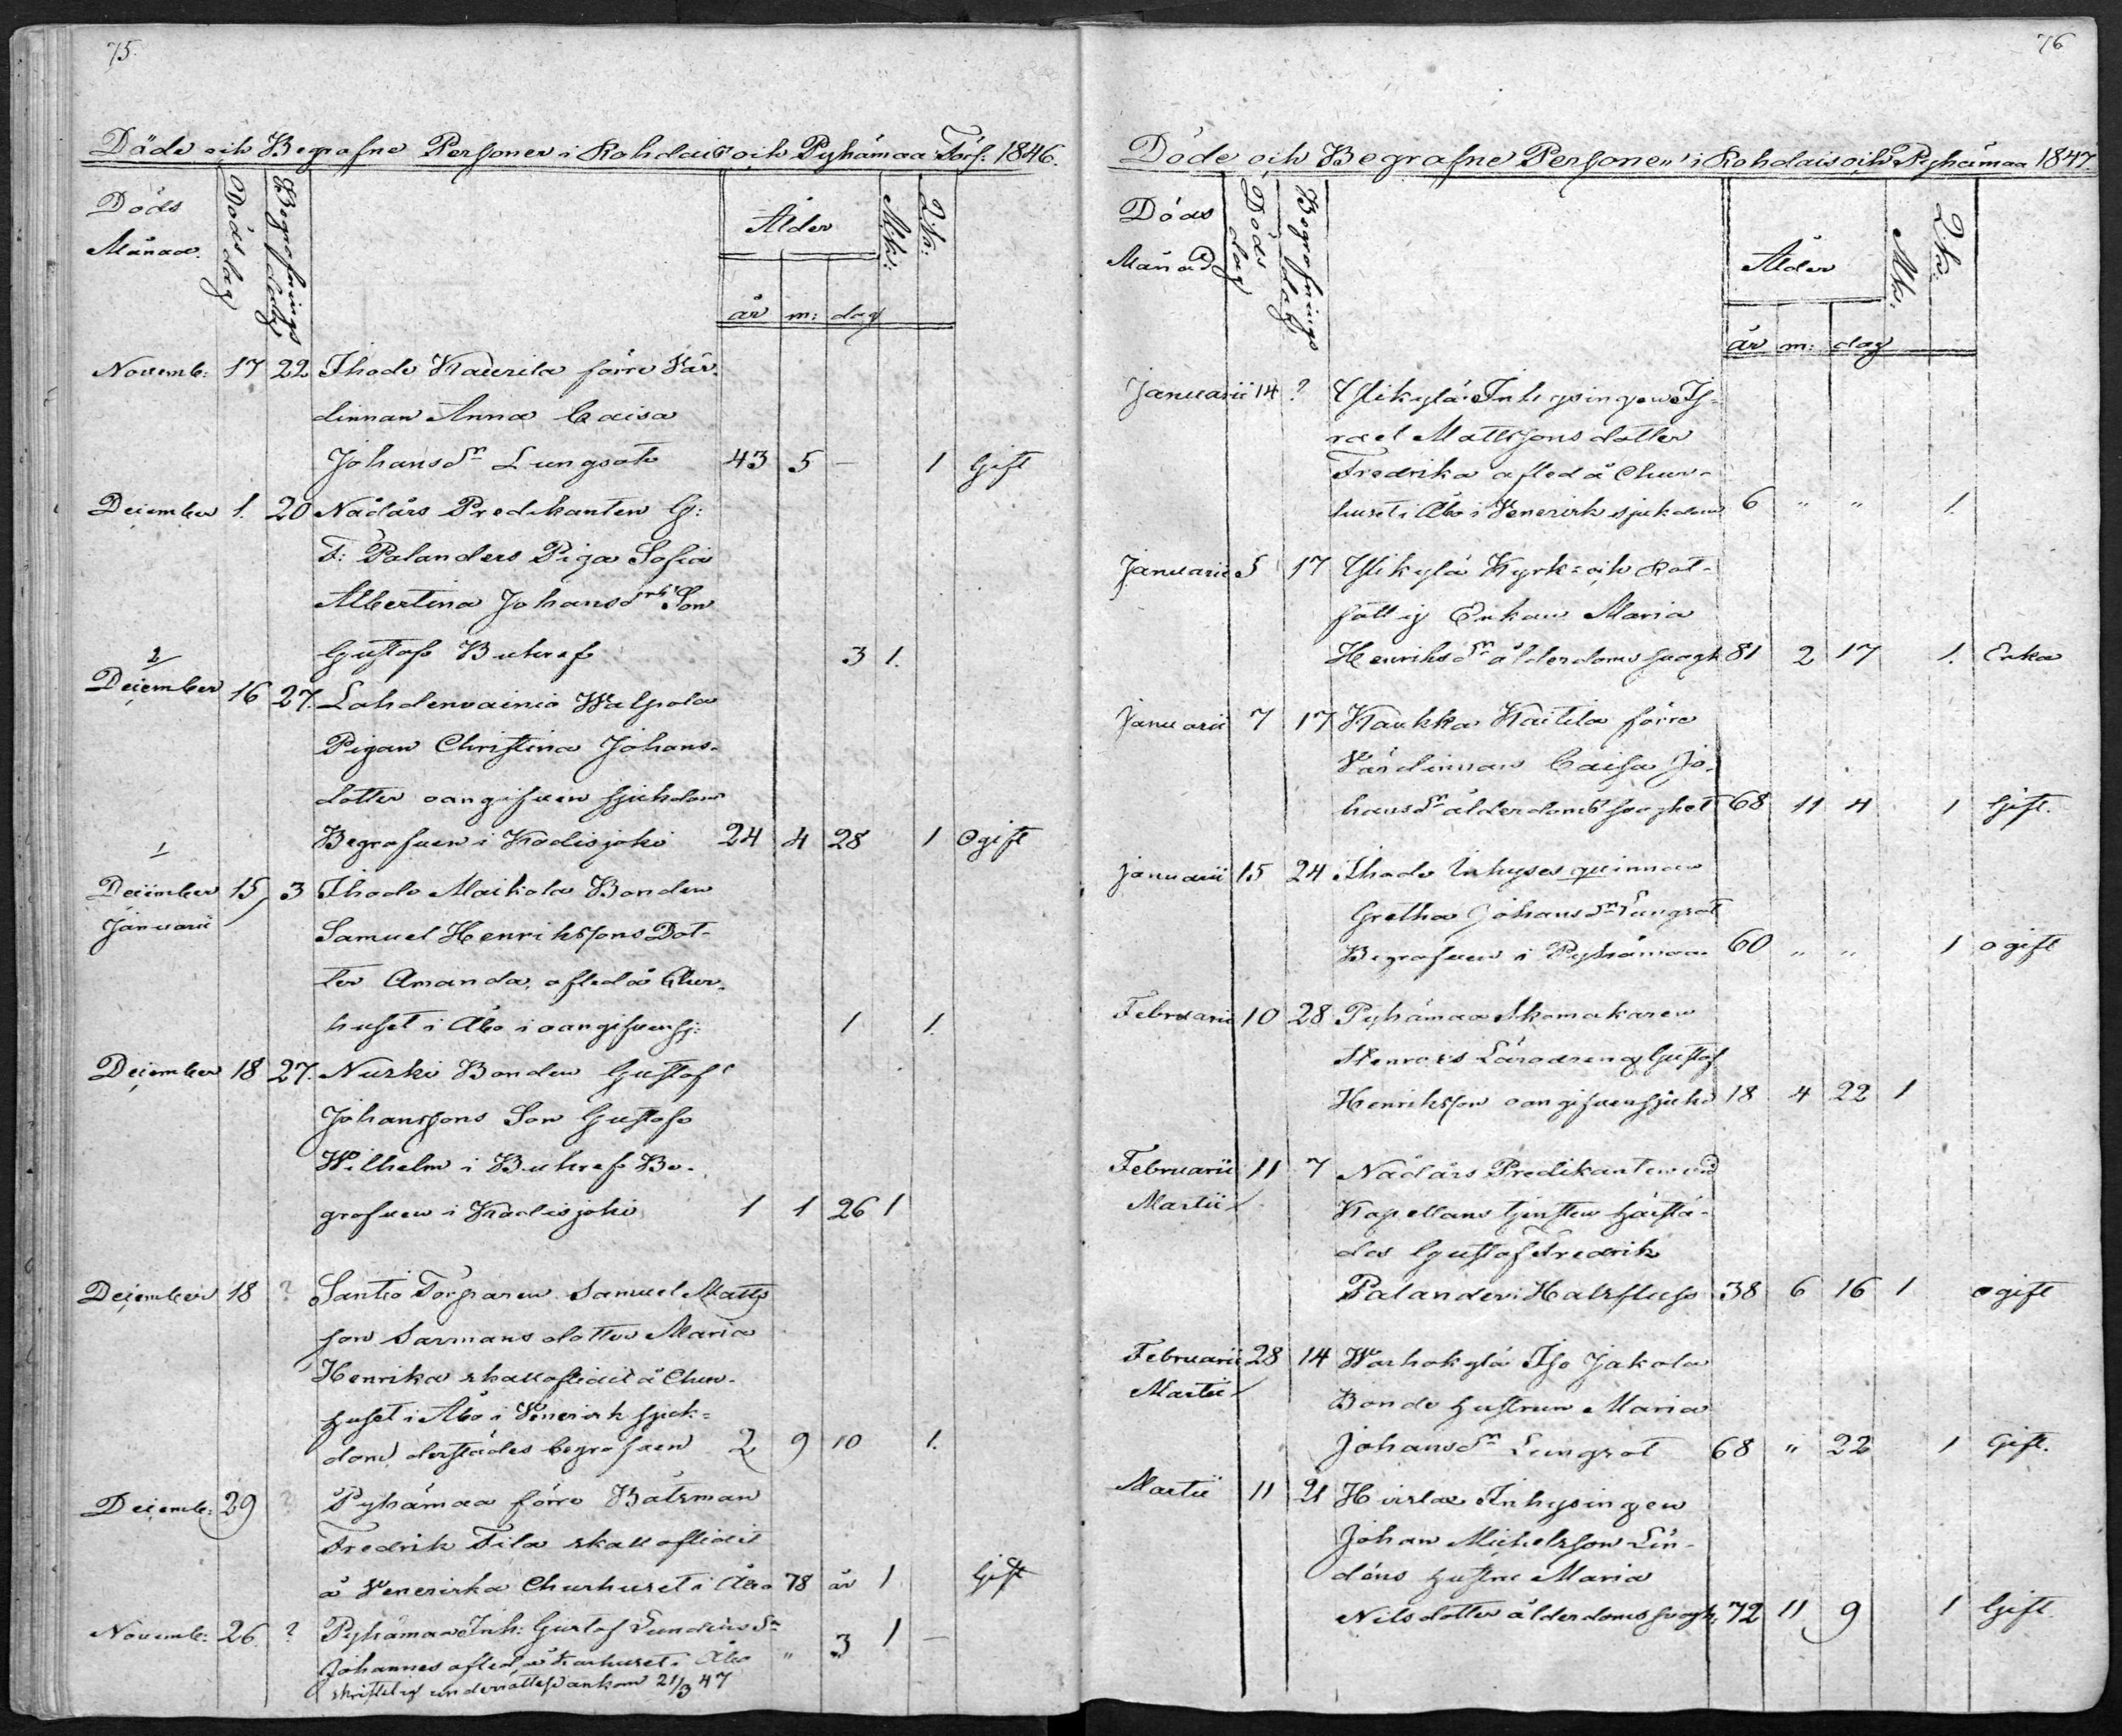 75.
Döde och Begrafne Personer i Rohdais och Pyhämaa Förs: 1846.
Döds Månad. Dödsdag Begrafnings dag Ålder Mk: Qk:
år m: dag
Novemb: 17 22 Ihode Kaurila förre Vär-
dinnan Anna Caisa
Johans dr Lungrot 43 5 – 1 Gift
December 1. 20 Nådårs Predikanten G:
F: Palanders Piga Sofia
Albertina Johans drs Son
Gustaf Buhref 3 1.
2
December 16 27. Lahdenvainio Walpola
Pigan Christina Johans-
dotter oangifven sjukdom
Begrafven i Kodisjoki 24 4 28 1 Ogift
1
December 15/ 3 Ihode Maikola Bonden
Januarii Samuel Henrikssons Dot-
ter Amanda, afled å Chur-
huset i Åbo i oangifven sj: 1 1.
December 18 27. Nurki Bonden Gustaf
Johanssons Son Gustaf
Wilhelm i Buhref Be-
grafven i Kodisjoki 1 1 26 1
December 18 ? Santio Torparen Samuel Matts
son Sarmans dotter Maria
Henrika skall aflidit å Chur-
huset i Åbo i Venerisk sjuk-
dom derstädes begrafven 2 9 10 1.
Decemb: 29 ? Pyhämaa förre Båtsman
Fredrik Fila skall aflidit
å Veneriska Churhuset i Åbo 78 år 1 Gift
Novemb: 26 ? Pyhämaa Inh: Gustaf Lundéns Sn
Johannes afled å Kurhuset i Åbo " 3 1 –
skriftelig underrättelse ankom 21/3 47
76
Döde och Begrafne Personer i Rohdais och Pyhämaa 1847.
Döds Månad Döds dag Begrafnings dag Ålder Mk: Qk:
år m: dag
Januarii 14 ? Ylikylä Inhysingen Is-
rael Mattssons dotter
Fredrika afled å Chur-
huset i Åbo i Venerisk sjukdom 6 " " 1.
Januarii 5 17 Ylikylä Kyrk- och Rot-
fattig Enkan Maria
Henriks dr ålderdoms svagh 81 2 17 1. Enka
Januarii 7 17 Kaukka Kaitila förre
Värdinnan Caisa Jo-
hans dr ålderdoms svaghet 68 11 4 1 Gift.
Januarii 15 24 Ihode Inhyses qvinnan
Gretha Johans dr Lungrot
Begrafven i Pyhämaa 60 " " 1 ogift
Februarii 10 28 Pyhämaa Skomakaren
Stenroos Lärodreng Gustaf
Henriksson oangifven sjukd 18 4 22 1
Februarii 11 7 Nådårs Predikanten vid
Martii / Kapellans tjensten härstä-
des Gustaf Fredrik
Palander i Halsfluss 38 6 16 1 ogift
Februarii 28 14 Warhokylä Iso Jakola
Martii / Bonde hustrun Maria
Johans dr Lungrot 68 " 22 1 Gift.
Martii 11 21 Hirslax Inhysingen
Johan Michelsson Lin-
déns hustru Maria
Nils dotter ålderdoms svagh, 72 11 9 1 Gift.